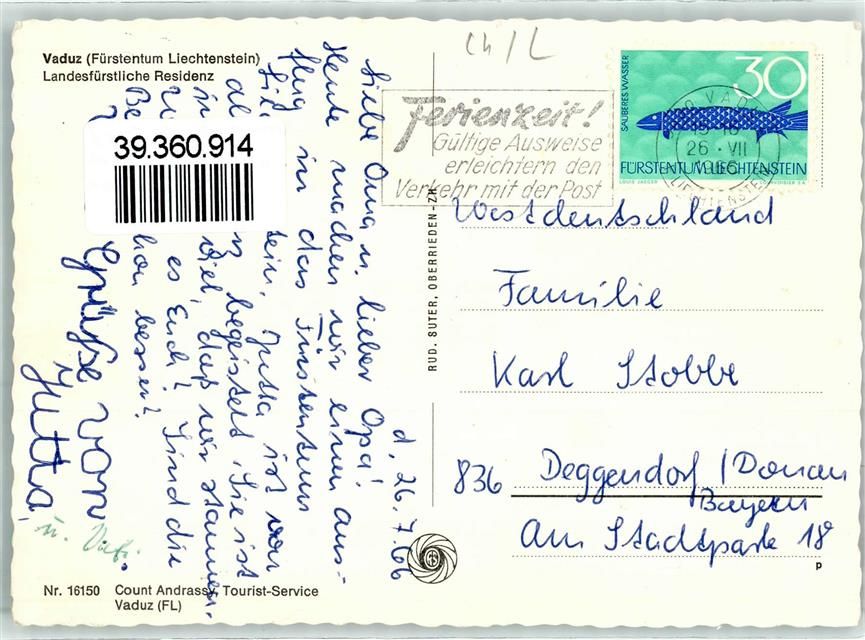 Vaduz (Fürstentum Liechtenstein)
Landesfürstliche Residenz
39.360.914
d. 26.7.66
Liebe Oma u. lieber Opa!
Heute machen wir einen aus-
flug in das Fürstentum
tein. Jutta ist von
begeistert. Sie ist
viel, daß wir staunen.
es Euch? Sind die
besser?
Grüße von
Jutta
u.
Nr. 16150 Count Andrassy, Tourist-Service
Vaduz (FL)
RUD. SUTER, OBERRIEDEN-ZH
CH/L
Ferienzeit!
Gültige Ausweise
erleichtern den
Verkehr mit der Post
SAUBERES WASSER
30
VADUZ
26.VII
1966
LIECHTENSTEIN
FÜRSTENTUM LIECHTENSTEIN
LOUIS JAEGER
Westdeutschland
Familie
Karl Stobbe
836 Deggendorf/Donau
Bayern
Am Stadtpark 18
P